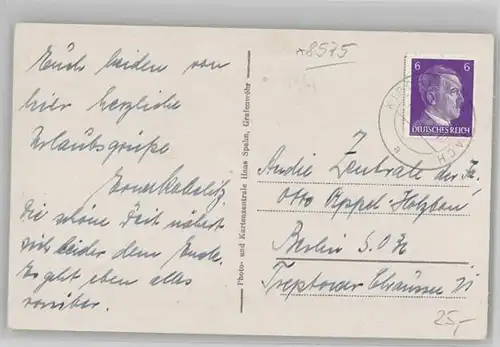 *8575
Euch beiden von
hier herzliche
Urlaubsgrüße
Die schöne Zeit nähert
sich leider dem Ende.
Es geht eben alles
vorüber.
Photo- und Kartenzentrale Hans Spahn, Grafenwöhr
6 6
DEUTSCHES REICH
a
An die Zentrale der Fa.
Otto Appel-Holzbau
Berlin S.O.
Treptower Chaussee
25,-